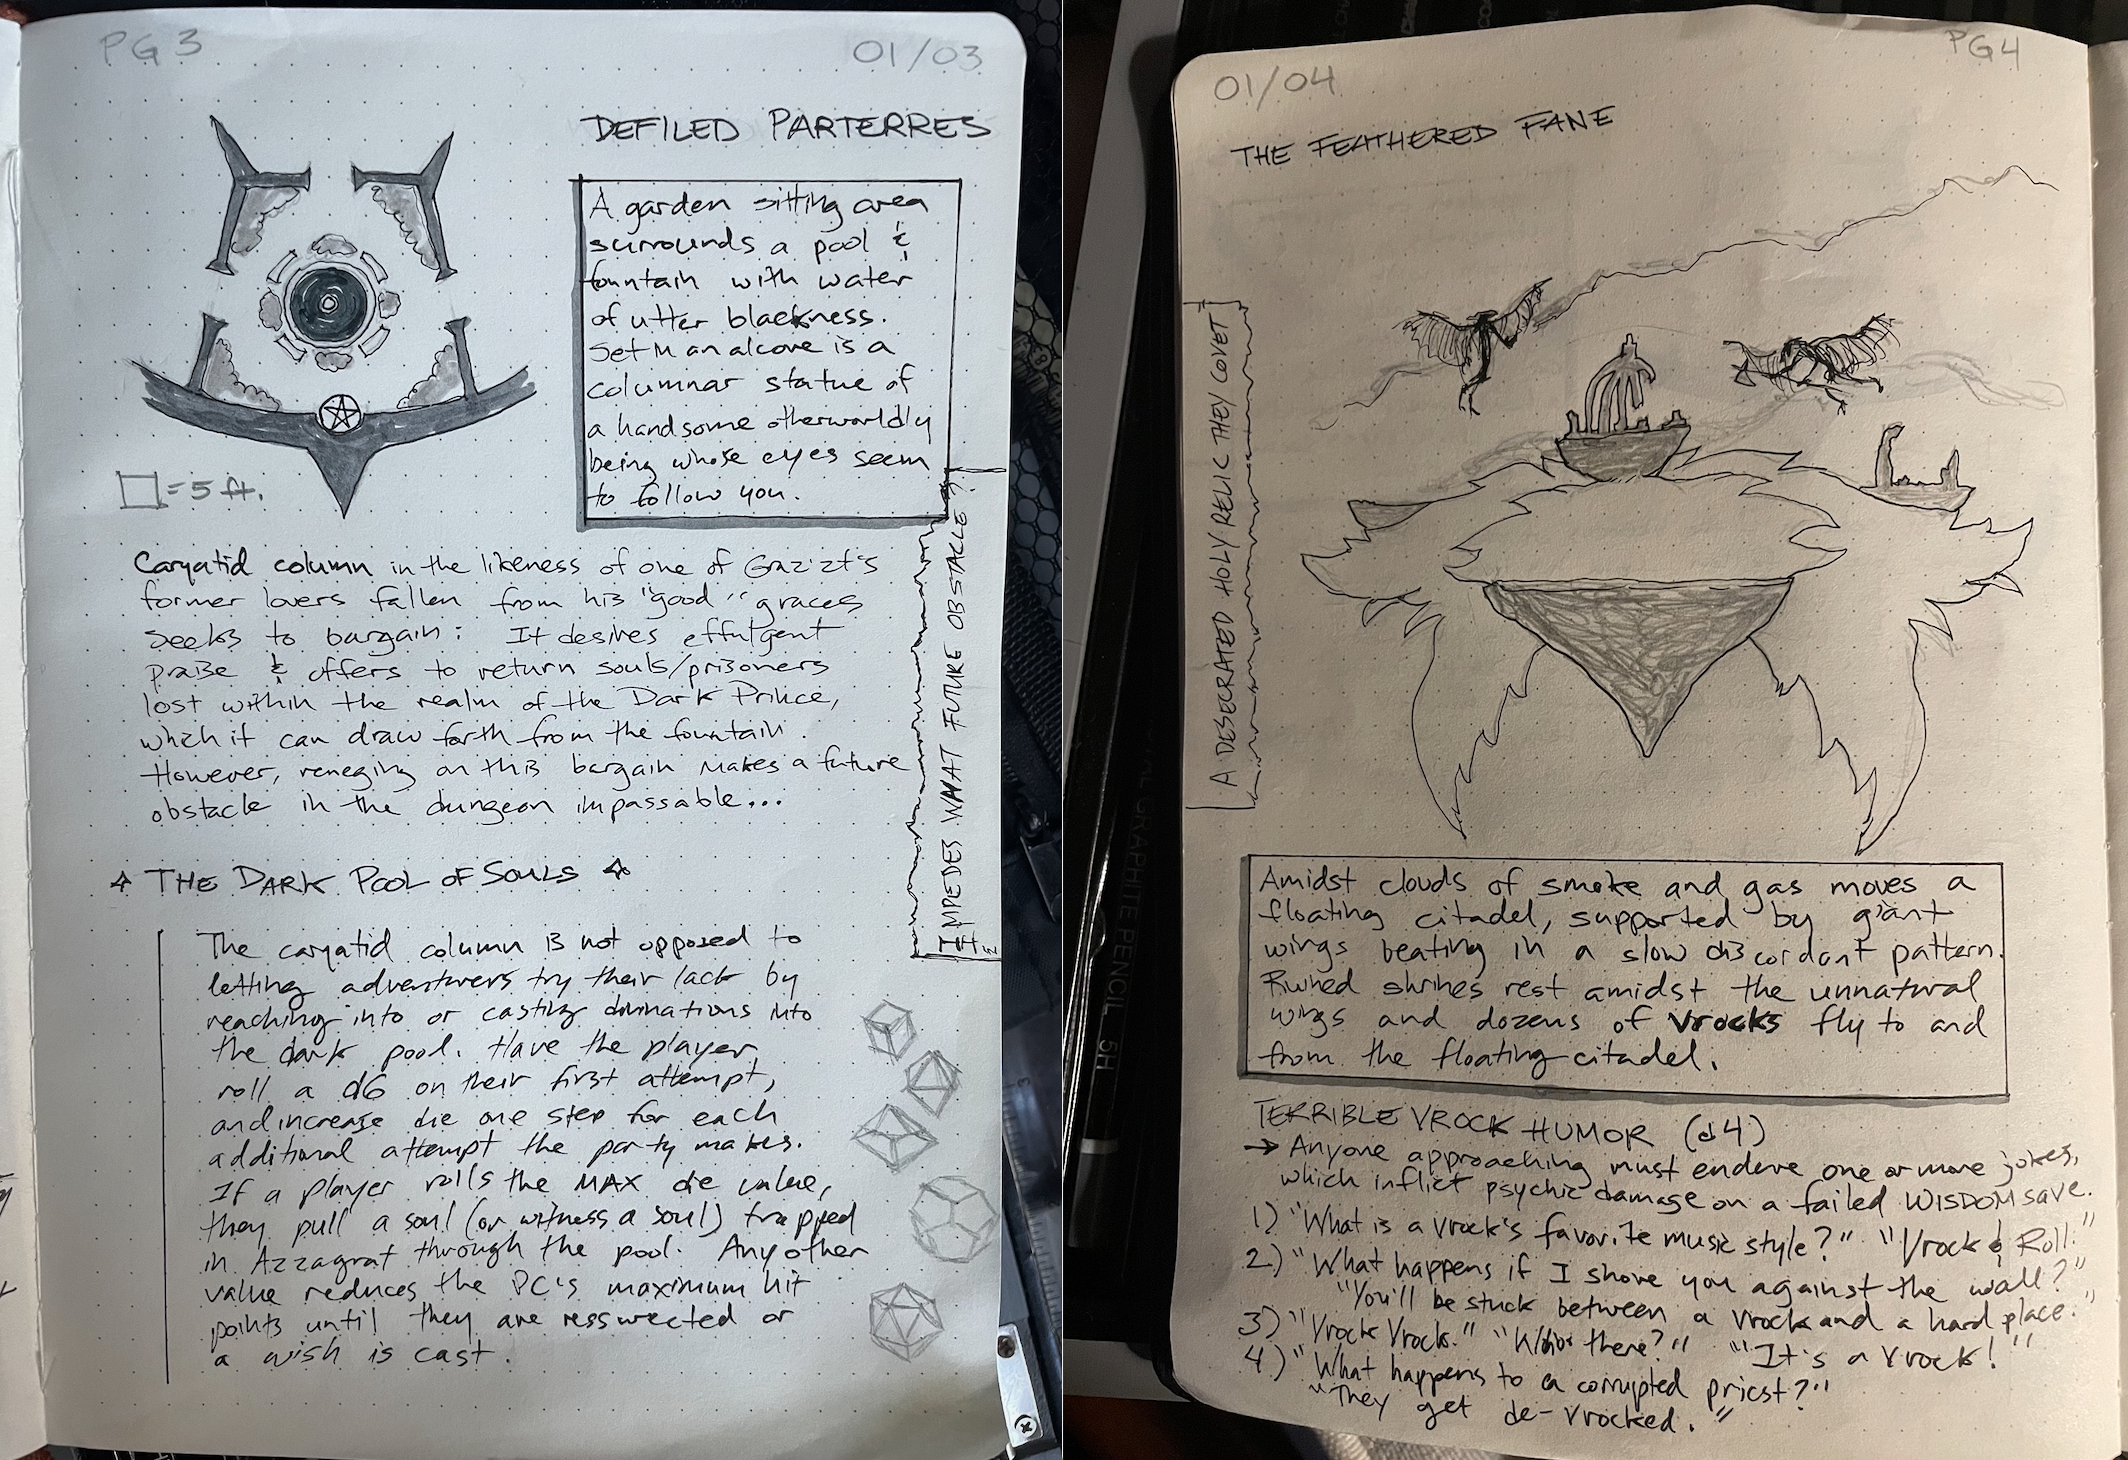 PG 3
01/03
DEFILED PARTERRES
A garden sitting area
surrounds a pool &
fountain with water
of utter blackness.
Set in an alcove is a
columnar statue of
a handsome otherworldly
being whose eyes seem
to follow you.
□ = 5 ft.
Caryatid column in the likeness of one of Graz'zt's
former lovers fallen from his "good" graces
seeks to bargain: It desires effulgent
praise & offers to return souls/prisoners
lost within the realm of the Dark Prince,
which it can draw forth from the fountain.
However, reneging on this bargain makes a future
obstacle in the dungeon impassable...
IMPEDES WHAT FUTURE OBSTACLE?
THE DARK POOL OF SOULS
The caryatid column is not opposed to
letting adventurers try their luck by
reaching into or casting divinations into
the dark pool. Have the player
roll a d6 on their first attempt,
and increase die one step for each
additional attempt the party makes.
If a player rolls the MAX die value,
they pull a soul (or witness a soul) trapped
in Azzagrat through the pool. Any other
value reduces the PC's maximum hit
points until they are resurrected or
a wish is cast.
01/04
PG4
THE FEATHERED FANE
A DESECRATED HOLY RELIC THEY COVET
Amidst clouds of smoke and gas moves a
floating citadel, supported by giant
wings beating in a slow discordant pattern.
Ruined shrines rest amidst the unnatural
wings and dozens of vrocks fly to and
from the floating citadel.
TERRIBLE VROCK HUMOR (d4)
→ Anyone approaching must endure one or more jokes,
which inflict psychic damage on a failed WISDOM save.
1) "What is a vrock's favorite music style?" "Vrock & Roll."
2) "What happens if I shove you against the wall?"
"You'll be stuck between a vrock and a hard place."
3) "Vrock Vrock." "Who's there?" "It's a vrock!"
4) "What happens to a corrupted priest?"
"They get de-vrocked."
GRAPHITE PENCIL 5H